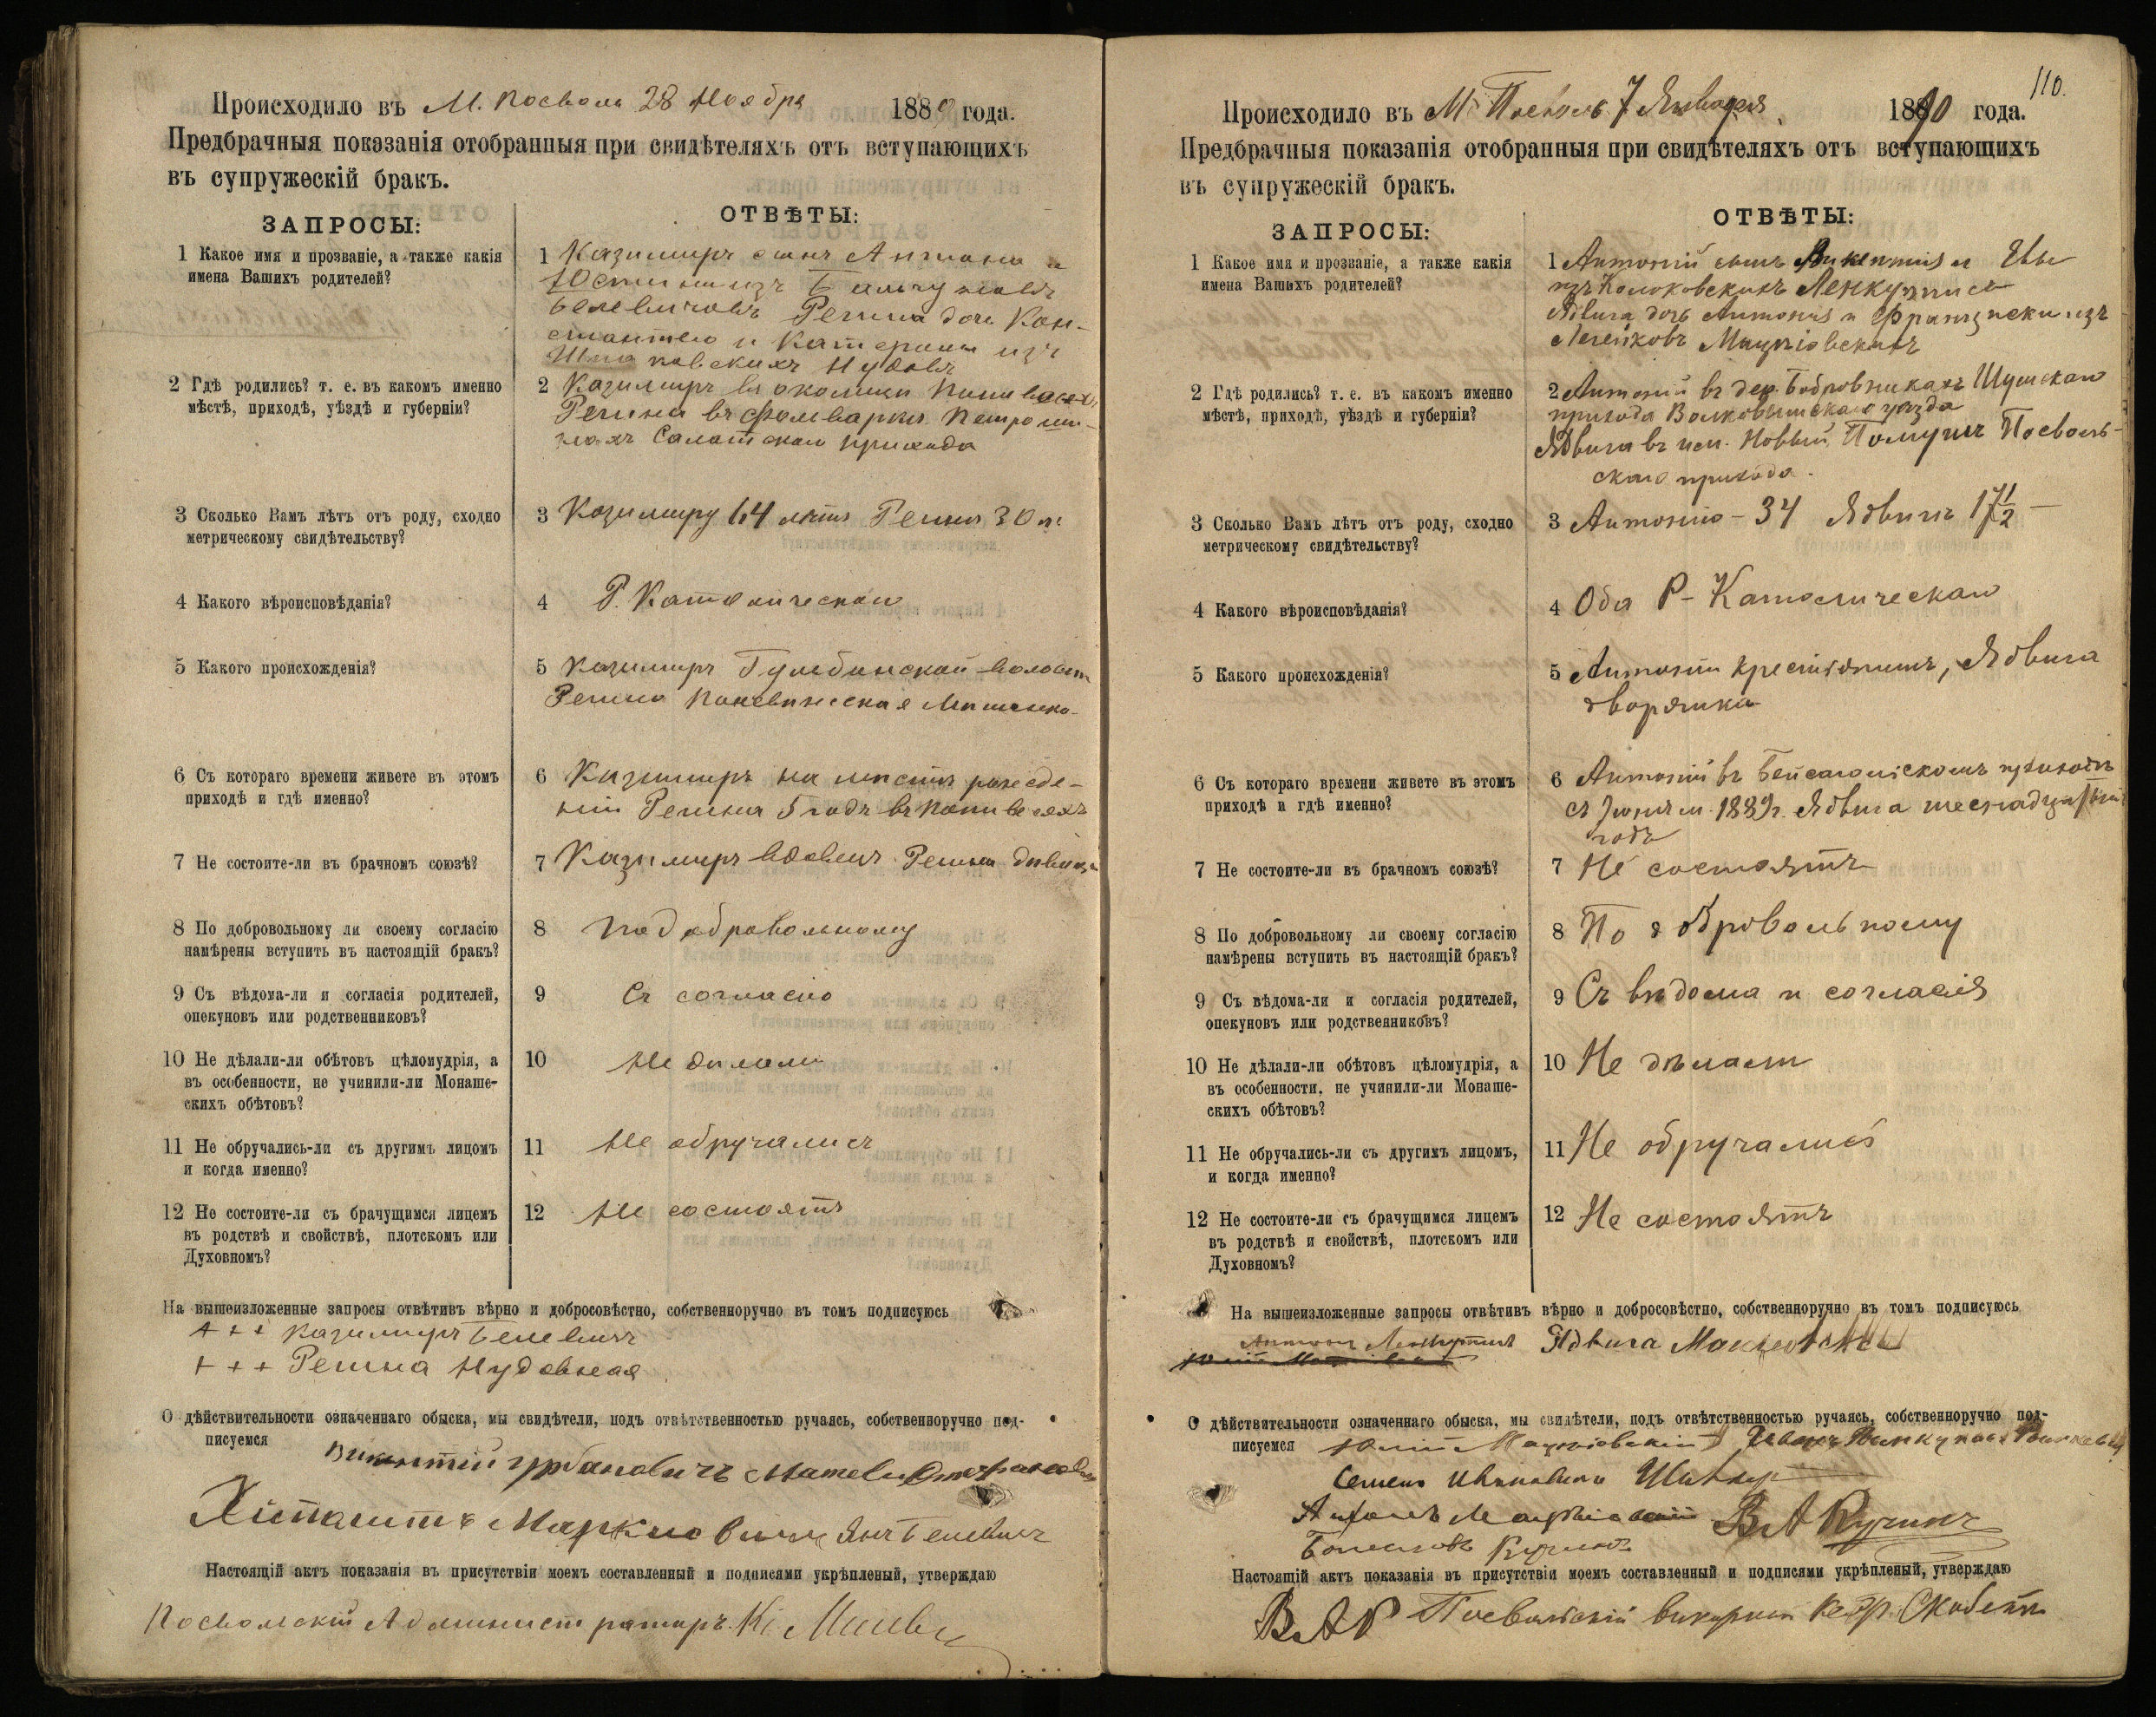 Происходило въ М. Посволь 28 Ноября 1889 года.
Предбрачныя показанія отобранныя при свидѣтеляхъ отъ вступающихъ
въ супружескій бракъ.
ЗАПРОСЫ:
ОТВѢТЫ:
1 Какое имя и прозваніе, а также какія
имена Вашихъ родителей?
1 Казимиръ сынъ Антона и
Юстины изъ
Белевичовъ Регина дочь Кон-
стантего и Катерины изъ
Нудовъ
2 Гдѣ родились? т. е. въ какомъ именно
мѣстѣ, приходѣ, уѣздѣ и губерніи?
2 Казимиръ въ околицы
Регина въ фольваркѣ
Салатскаго прихода
3 Сколько Вамъ лѣтъ отъ роду, сходно
метрическому свидѣтельству?
3 Казимиру 64 лѣтъ Регинѣ 30 л.
4 Какого вѣроисповѣданія?
4 Р. Католическаго
5 Какого происхожденія?
5 Казимиръ волости
Регина Поневѣжская
6 Съ котораго времени живете въ этомъ
приходѣ и гдѣ именно?
6 Казимиръ на мѣстѣ рожде-
ній Регина 5 годъ въ
7 Не состоите-ли въ брачномъ союзѣ?
7 Казимиръ вдовецъ Регина дѣвица
8 По добровольному ли своему согласію
намѣрены вступить въ настоящій бракъ?
8 По добровольному
9 Съ вѣдома-ли и согласія родителей,
опекуновъ или родственниковъ?
9 Съ согласію
10 Не дѣлали-ли обѣтовъ цѣломудрія, а
въ особенности, не учинили-ли Монаше-
скихъ обѣтовъ?
10 Не дѣлали
11 Не обручались-ли съ другимъ лицомъ
и когда именно?
11 Не обручались
12 Не состоите-ли съ брачущимся лицемъ
въ родствѣ и свойствѣ, плотскомъ или
Духовномъ?
12 Не состоятъ
На вышеизложенные запросы отвѣтивъ вѣрно и добросовѣстно, собственноручно въ томъ подписуюсь
+ + + Казимиръ Белевичъ
+ + + Регина Нудовная
О дѣйствительности означеннаго обыска, мы свидѣтели, подъ отвѣтственностью ручаясь, собственноручно под-
писуемся
Викентій Урбановичъ
Янъ Белевичъ
Настоящій актъ показанія въ присутствіи моемъ составленный и подписями укрѣпленый, утверждаю
Посвольскій Администраторъ
110.
Происходило въ М. Посволь 7 Января 1890 года.
Предбрачныя показанія отобранныя при свидѣтеляхъ отъ вступающихъ
въ супружескій бракъ.
ЗАПРОСЫ:
ОТВѢТЫ:
1 Какое имя и прозваніе, а также какія
имена Вашихъ родителей?
1 Антоній сынъ Викентія и Евы
изъ
Ядвига дочь Антонія и Францишки изъ
2 Гдѣ родились? т. е. въ какомъ именно
мѣстѣ, приходѣ, уѣздѣ и губерніи?
2 Антоній въ дер. Бобровникахъ
прихода Волковышскаго уѣзда
Ядвига въ им. Новый Помушъ Посволь-
скаго прихода.
3 Сколько Вамъ лѣтъ отъ роду, сходно
метрическому свидѣтельству?
3 Антонію – 34 Ядвигѣ 17½ –
4 Какого вѣроисповѣданія?
4 Оба Р – Католическаго
5 Какого происхожденія?
5 Антоній крестьянинъ, Ядвига
дворянка
6 Съ котораго времени живете въ этомъ
приходѣ и гдѣ именно?
6 Антоній въ Бейсагольскомъ приходѣ
съ Іюня м. 1889 г. Ядвига
годъ
7 Не состоите-ли въ брачномъ союзѣ?
7 Не состоятъ
8 По добровольному ли своему согласію
намѣрены вступить въ настоящій бракъ?
8 По добровольному
9 Съ вѣдома-ли и согласія родителей,
опекуновъ или родственниковъ?
9 Съ вѣдома и согласія
10 Не дѣлали-ли обѣтовъ цѣломудрія, а
въ особенности, не учинили-ли Монаше-
скихъ обѣтовъ?
10 Не дѣлали
11 Не обручались-ли съ другихъ лицомъ,
и когда именно?
11 Не обручались
12 Не состоите-ли съ брачущимся лицемъ
въ родствѣ и свойствѣ, плотскомъ или
Духовномъ?
12 Не состоятъ
На вышеизложенные запросы отвѣтивъ вѣрно и добросовѣстно, собственноручно въ томъ подписуюсь
Ядвига
О дѣйствительности означеннаго обыска, мы свидѣтели, подъ отвѣтственностью ручаясь, собственноручно под-
писуемся
Семенъ Ивановичъ
Настоящій актъ показанія въ присутствіи моемъ составленный и подписями укрѣпленый, утверждаю
Посвольскій викарный